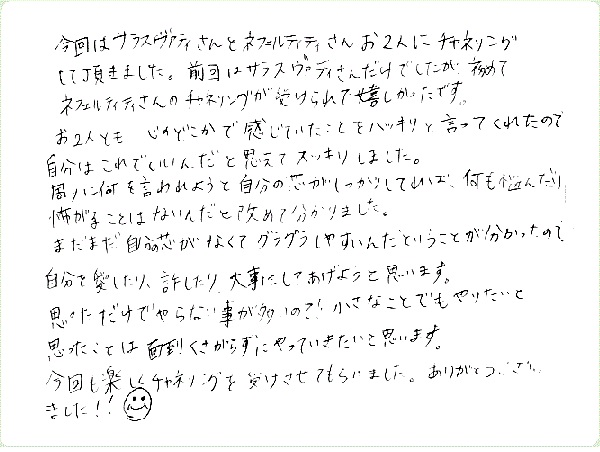 今回はサラスヴァティさんとネフェルティティさんお2人にチャネリング
して頂きました。前回はサラスヴァティさんだけでしたが、初めて
ネフェルティティさんのチャネリングが受けられて嬉しかったです。
お2人とも心のどこかで感じていたことをハッキリと言ってくれたので
自分はこれでいいんだと思えてスッキリしました。
周りに何を言われようと自分の芯がしっかりしていれば、何も悩んだり
怖がることはないんだと改めて分かりました。
まだまだ自分の芯がなくてグラグラしやすいんだということが分かったので
自分を愛したり、許したり、大事にしてあげようと思います。
思っただけでやらない事が多いので！小さなことでもやりたいと
思ったことは面倒くさがらずにやっていきたいと思います。
今回も楽しくチャネリングを受けさせてもらいました。ありがとうござい
ました！！